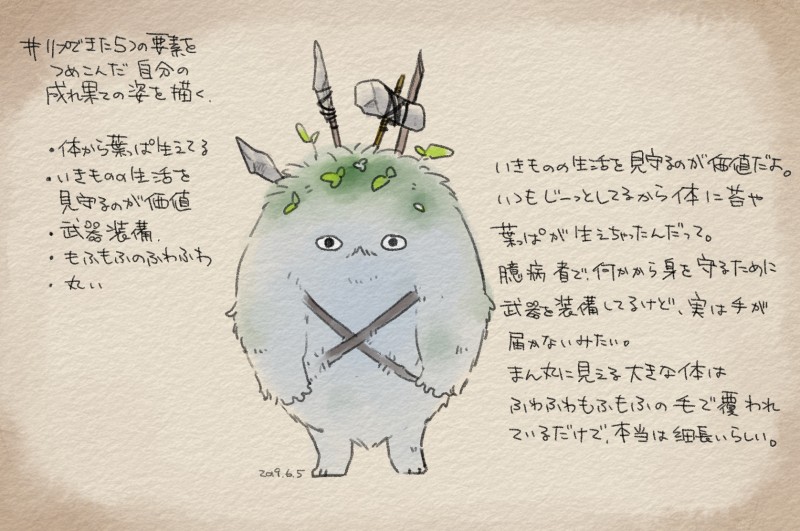 #リプできた5つの要素を
つめこんだ自分の
成れ果ての姿を描く.
・体から葉っぱ生えてる
・いきものの生活を
見守るのが価値
・武器装備.
・もふもふのふわふわ
・丸い
いきものの生活を見守るのが価値だよ。
いつもじーっとしてるから体に苔や
葉っぱが生えちゃったんだって。
臆病者で、何かから身を守るために
武器を装備してるけど、実は手が
届かないみたい。
まん丸に見える大きな体は
ふわふわもふもふの毛で覆われ
ているだけで、本当は細長いらしい。
2019.6.5